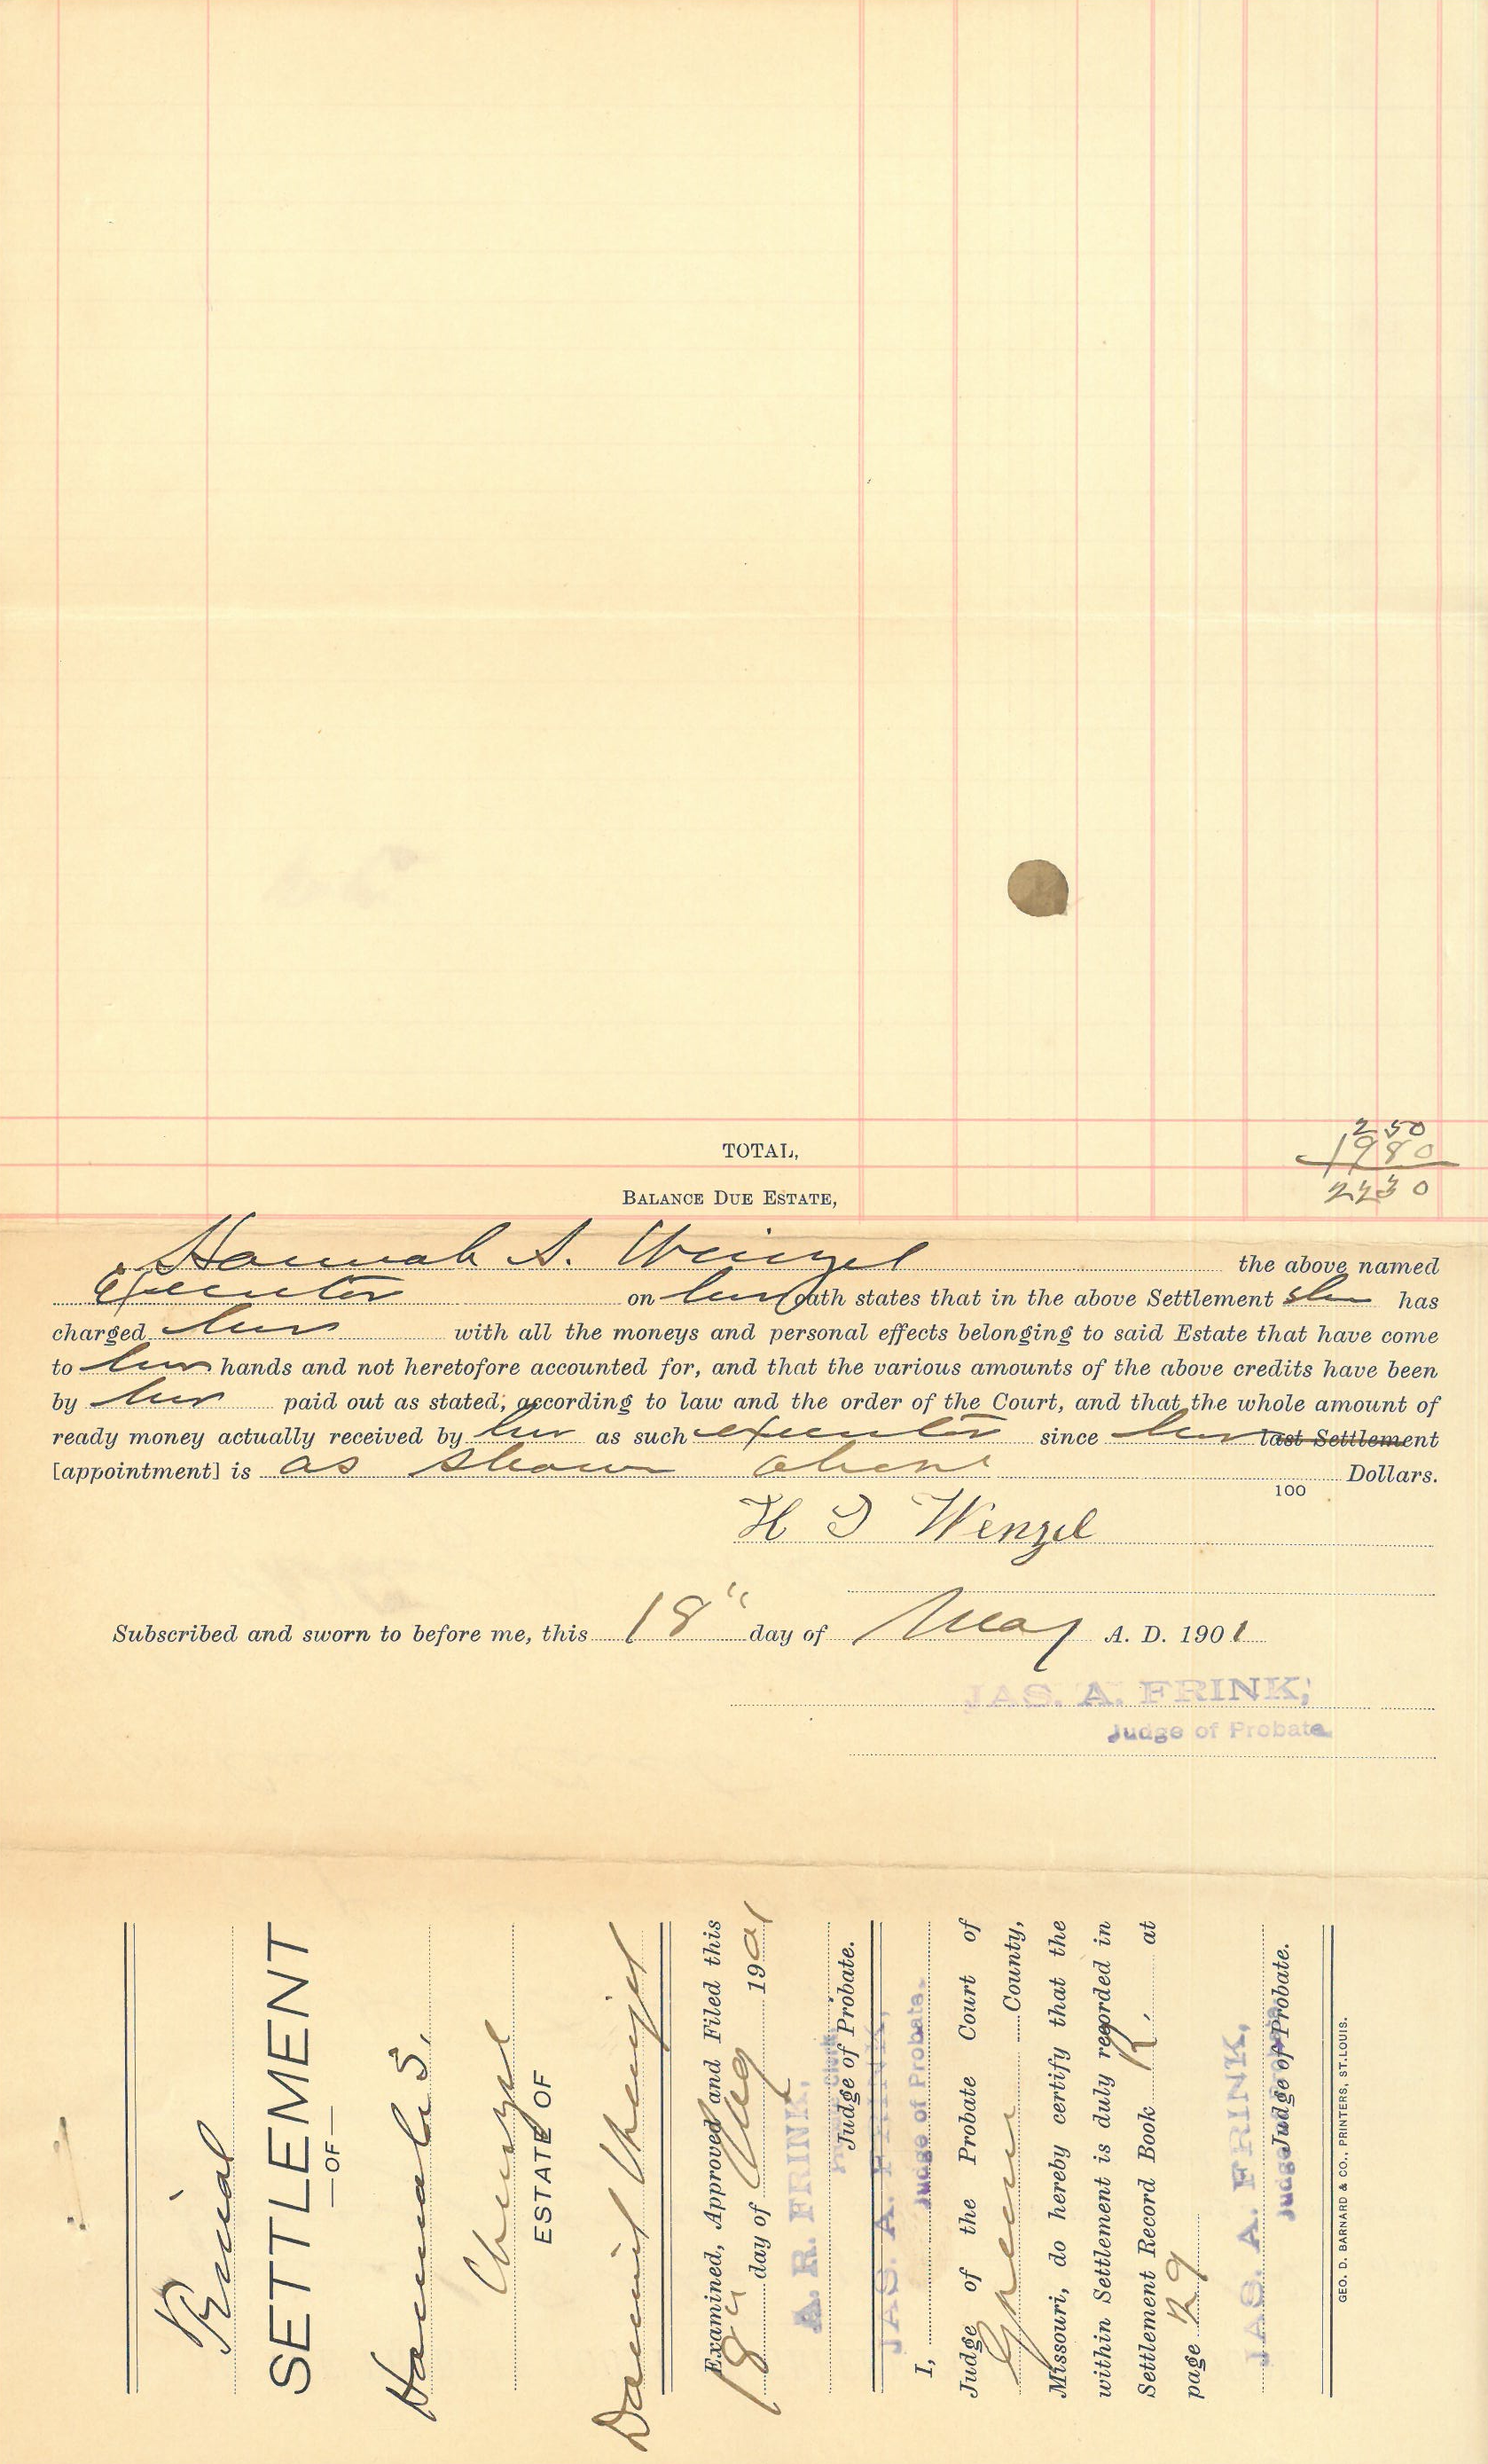 250
1980
TOTAL,
2230
BALANCE DUE ESTATE,
Hannah S. Wenzel the above named
Executor on her oath states that in the above Settlement she has
charged her with all the moneys and personal effects belonging to said Estate that have come
to her hands and not heretofore accounted for, and that the various amounts of the above credits have been
by her paid out as stated; according to law and the order of the Court, and that the whole amount of
ready money actually received by her as such executor since her last Settlement
[appointment] is as shown above Dollars.
100
H S Wenzel
Subscribed and sworn to before me, this 18" day of May A. D. 1901
JAS. A. FRINK,
Judge of Probate
Final
SETTLEMENT
—OF—
Hannah S.
Wenzel
ESTATE OF
Daniel Wenzel
Examined, Approved and Filed this
18" day of 1901
A. R. FRINK,
Clerk
Judge of Probate.
JAS. A. FRINK,
Judge of Probate
I,
Judge of the Probate Court of
Greene County,
Missouri, do hereby certify that the
within Settlement is duly recorded in
Settlement Record Book R, at
page 29
JAS. A. FRINK,
Judge of Probate.
GEO. D. BARNARD & CO., PRINTERS, ST. LOUIS.